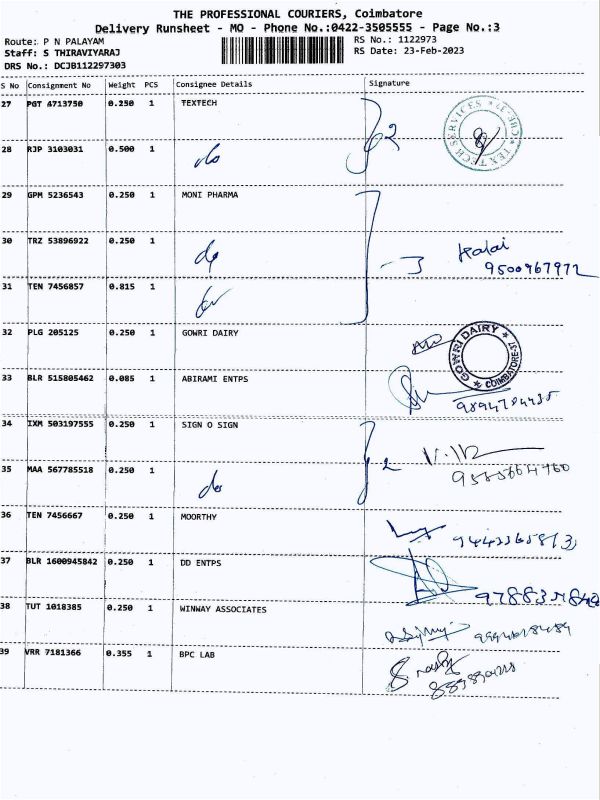 THE PROFESSIONAL COURIERS, Coimbatore
Delivery Runsheet - MO - Phone No.:0422-3505555 - Page No.:3
Route: P N PALAYAM RS No.: 1122973
Staff: S THIRAVIYARAJ RS Date: 23-Feb-2023
DRS No.: DCJB112297303
S No Consignment No Weight PCS Consignee Details Signature
27 PGT 4713750 0.250 1 TEXTECH
2
TEX TECH SERVICES CBE-37
28 RJP 3103031 0.500 1 do
29 GPM 5236543 0.250 1 MONI PHARMA
30 TRZ 53896922 0.250 1 do
3 Kalai
9500967972
31 TEN 7456857 0.815 1 do
32 PLG 205125 0.250 1 GOWRI DAIRY
GOWRI DAIRY COIMBATORE-37
33 BLR 515805462 0.085 1 ABIRAMI ENTPS
34 IXM 503197555 0.250 1 SIGN O SIGN
2
35 MAA 567785518 0.250 1 do
36 TEN 7456667 0.250 1 MOORTHY
37 BLR 1600945842 0.250 1 DD ENTPS
38 TUT 1018385 0.250 1 WINWAY ASSOCIATES
39 VRR 7181366 0.355 1 BPC LAB